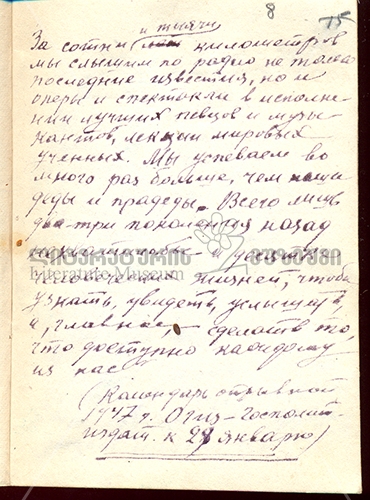 8
15
и тысячи
За сотни километров
мы слышим по радио не только
последние известия, но и
оперы и спектакли в исполне-
нии лучших певцов и музы-
кантов, лекции мировых
ученных. Мы успеваем во
много раз больше, чем наши
деды и прадеды. Всего лишь
два-три поколения назад
ლიტერატურის მუზეუმი
Literature Museum
человеческих жизней, чтобы
узнать, увидеть, услышать
а, главное, – сделать то,
что доступно каждому
из нас
(Календарь отрывной
1947 г. Огиз-Госполит-
издат. к 28 январю)